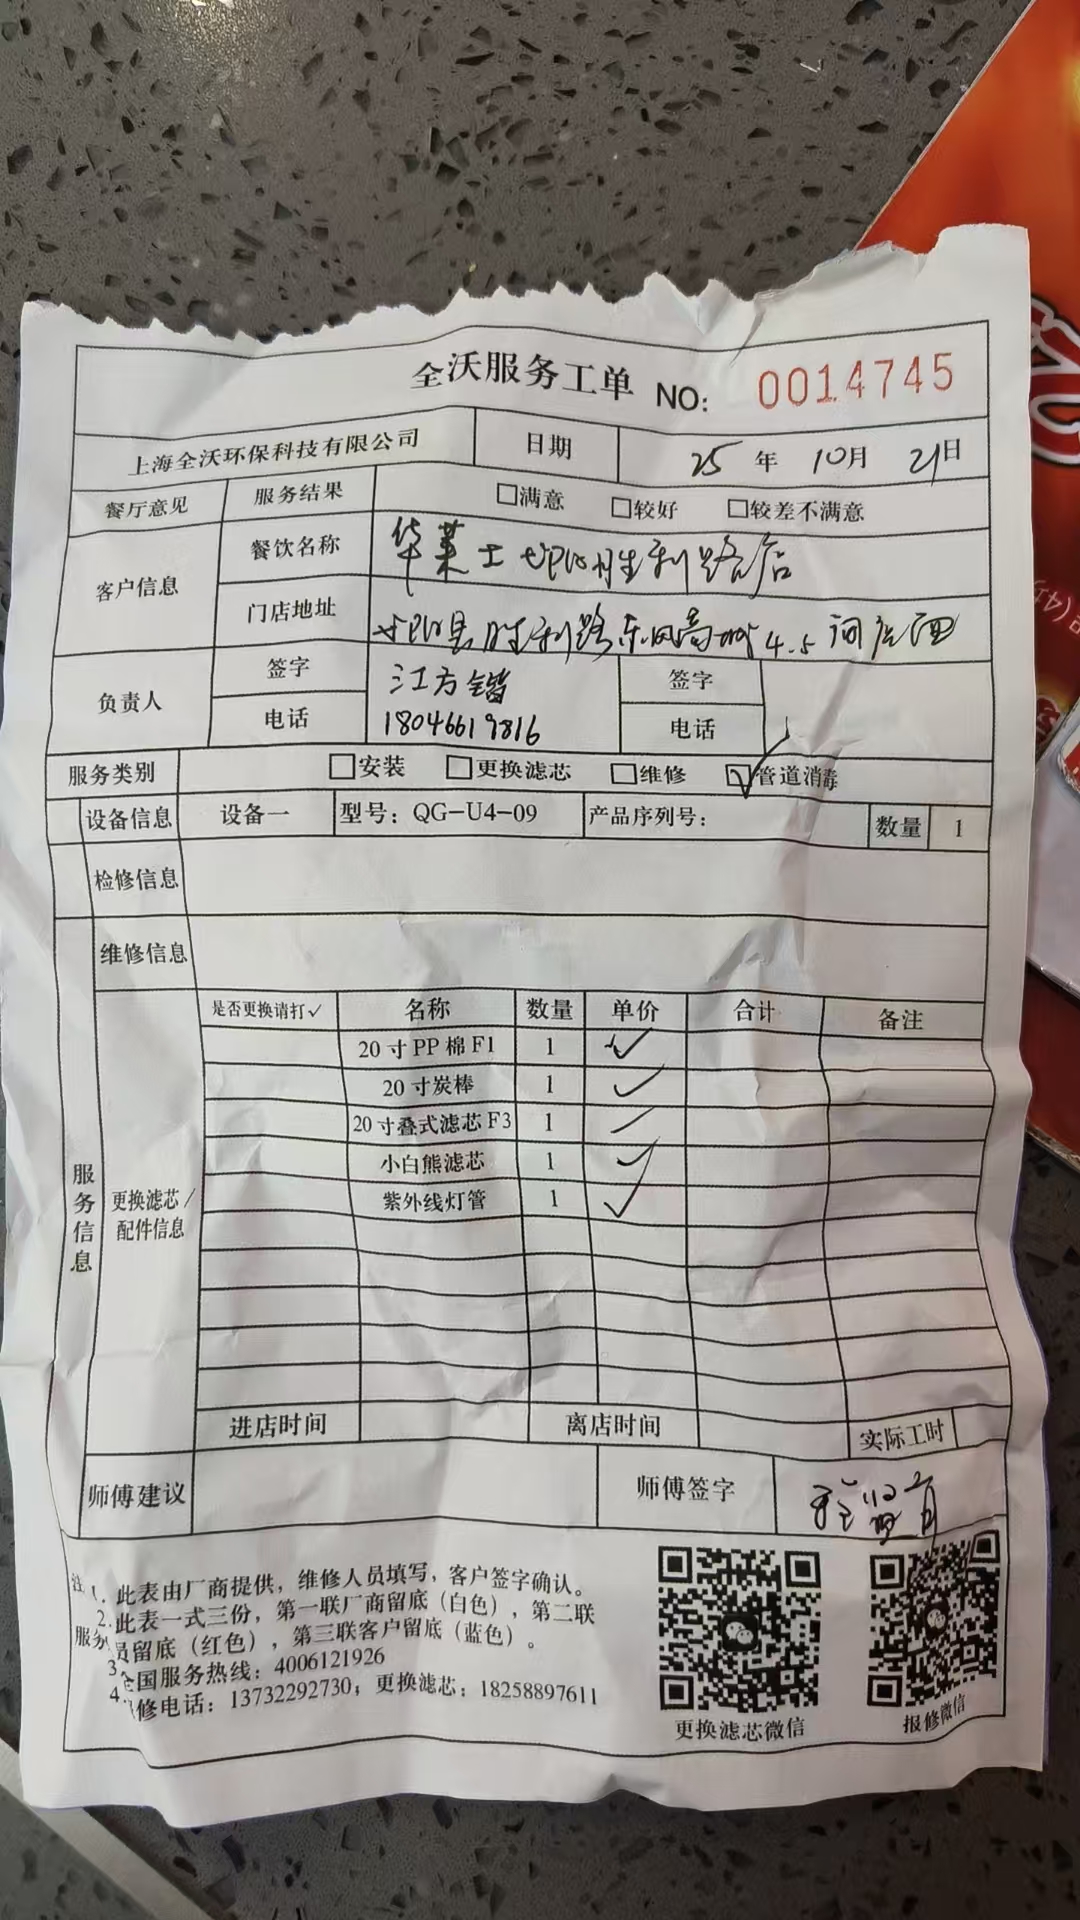 全沃服务工单 NO: 0014745
上海全沃环保科技有限公司 日期 25年10月21日
餐厅意见 服务结果 □满意 □较好 □较差不满意
客户信息 餐饮名称 华莱士 胜利路店
门店地址 县胜利路东风商城4.5间店面
负责人 签字 江方锴 签字
电话 18046619816 电话
服务类别 □安装 □更换滤芯 □维修 ☑管道消毒
设备信息 设备一 型号：QG-U4-09 产品序列号： 数量 1
检修信息
维修信息
服务信息
更换滤芯/配件信息
是否更换请打✓ 名称 数量 单价 合计 备注
20寸PP棉F1 1 ✓
20寸炭棒 1 ✓
20寸叠式滤芯F3 1 ✓
小白熊滤芯 1 ✓
紫外线灯管 1 ✓
进店时间 离店时间 实际工时
师傅建议 师傅签字
注 1. 此表由厂商提供，维修人员填写，客户签字确认。
2. 此表一式三份，第一联厂商留底（白色），第二联
服务 员留底（红色），第三联客户留底（蓝色）。
3. 全国服务热线：4006121926
4. 修电话：13732292730；更换滤芯：18258897611
更换滤芯微信 报修微信